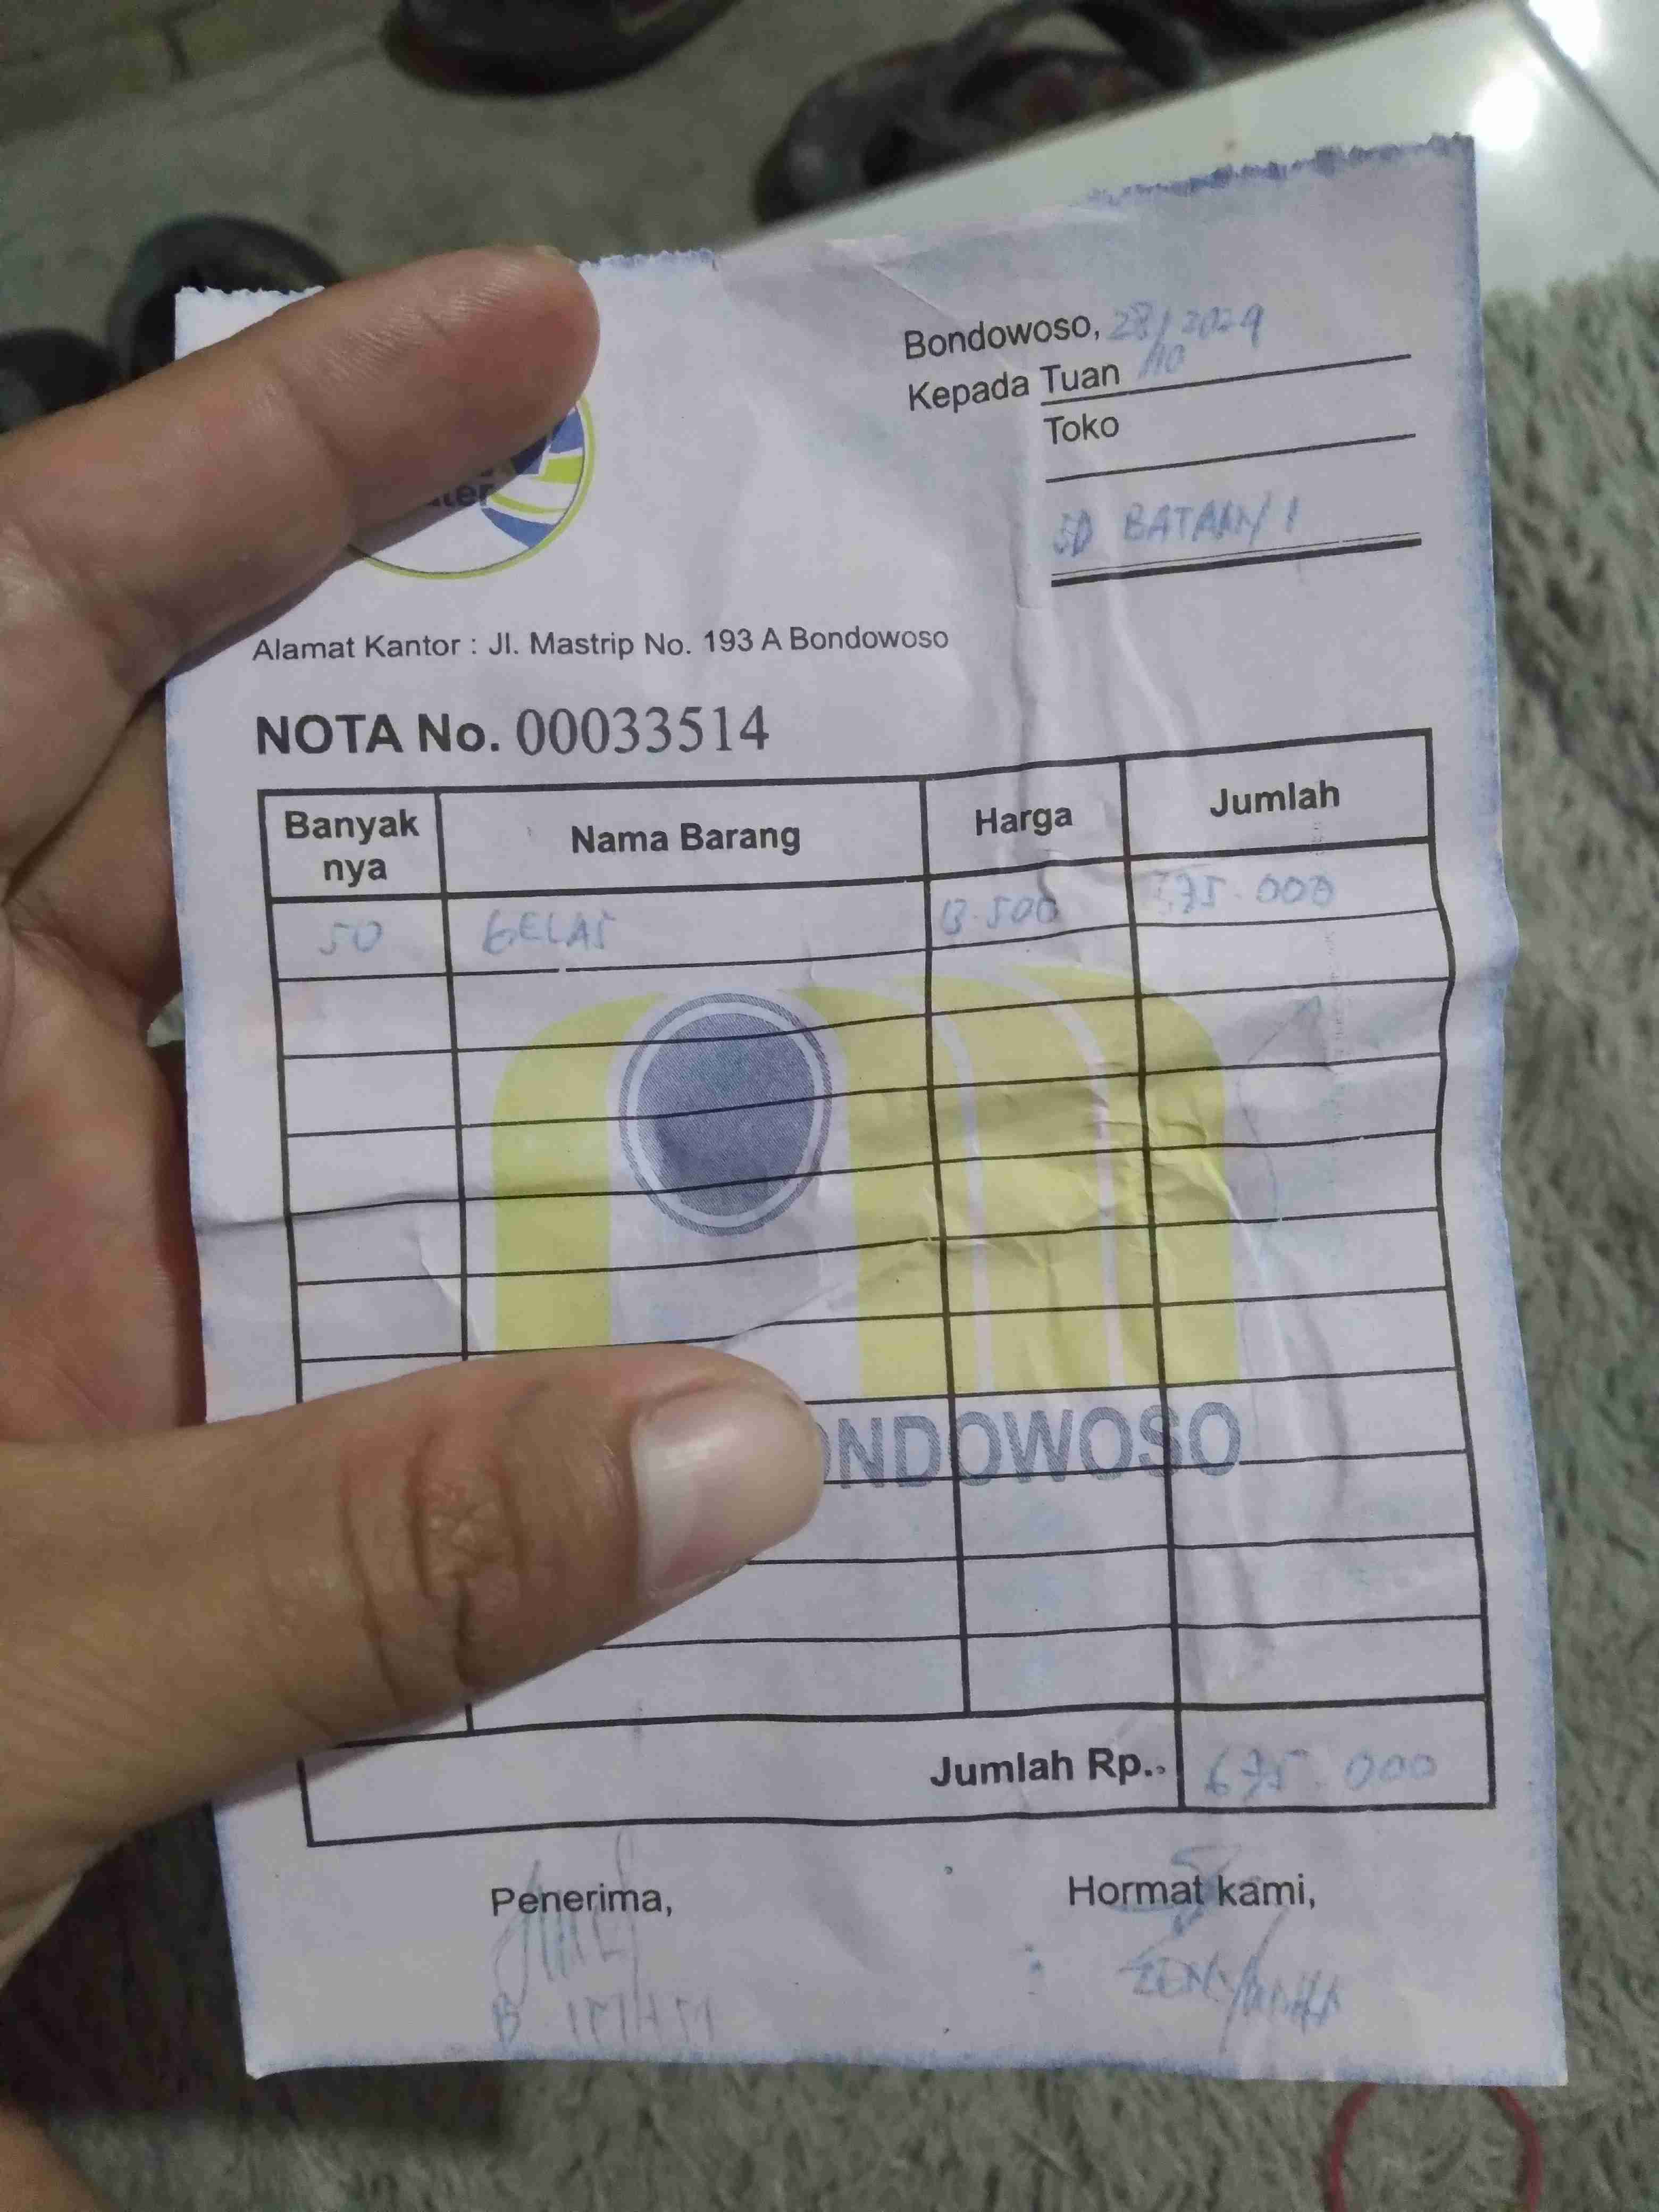 Bondowoso, 28/10 2024
Kepada Tuan
Toko
SD BATAAN 1
Alamat Kantor : Jl. Mastrip No. 193 A Bondowoso
NOTA No. 00033514
Banyak nya Nama Barang Harga Jumlah
50 GELAS 13.500 675.000
ONDOWOSO
Jumlah Rp.. 675.000
Penerima, Hormat kami,